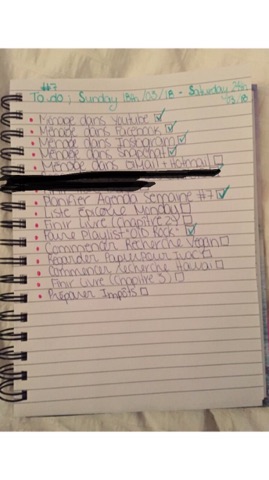 #7
To do; Sunday 18th/03/18 - Saturday 24th
/03/18
Ménage dans Youtube
Ménage dans Facebook
Ménage dans Instagram
Ménage dans Snapchat
Ménage dans Email + Hotmail
Planifier Agenda Semaine #7
Liste Épicerie Monday
Finir Livre (Chapitre 2)
Faire Playlist "Old Rock"
Commencer Recherche Vegan
Regarder Papier pour
Commencer Recherche Hawaï
Finir Livre (Chapitre 3)
Préparer Impôts